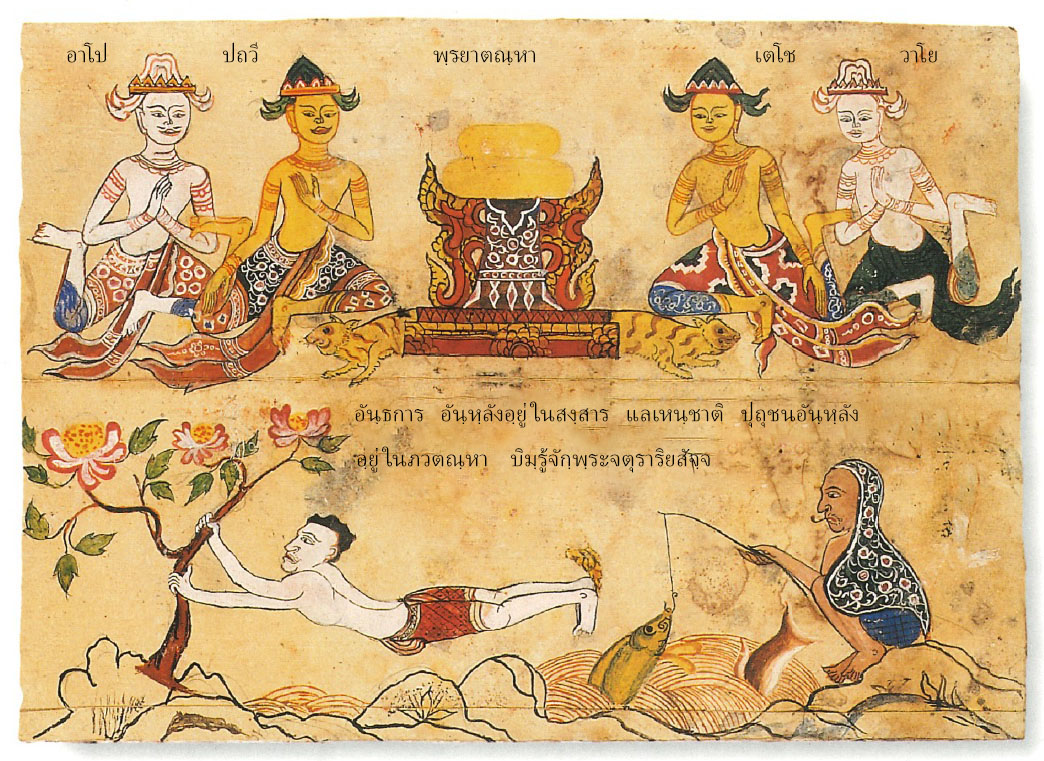 อาโป ปถวี พฺรยาตณฺหา เตโช วาโย
อันฺธการ อันฺหฺลังอฺยู่ในสงฺสาร แลเหนฺชาติ ปุถุชนอันฺหฺลัง
อฺยู่ในภวตณฺหา บิมฺรู้จักฺพฺระจตุราริยสัจฺจ